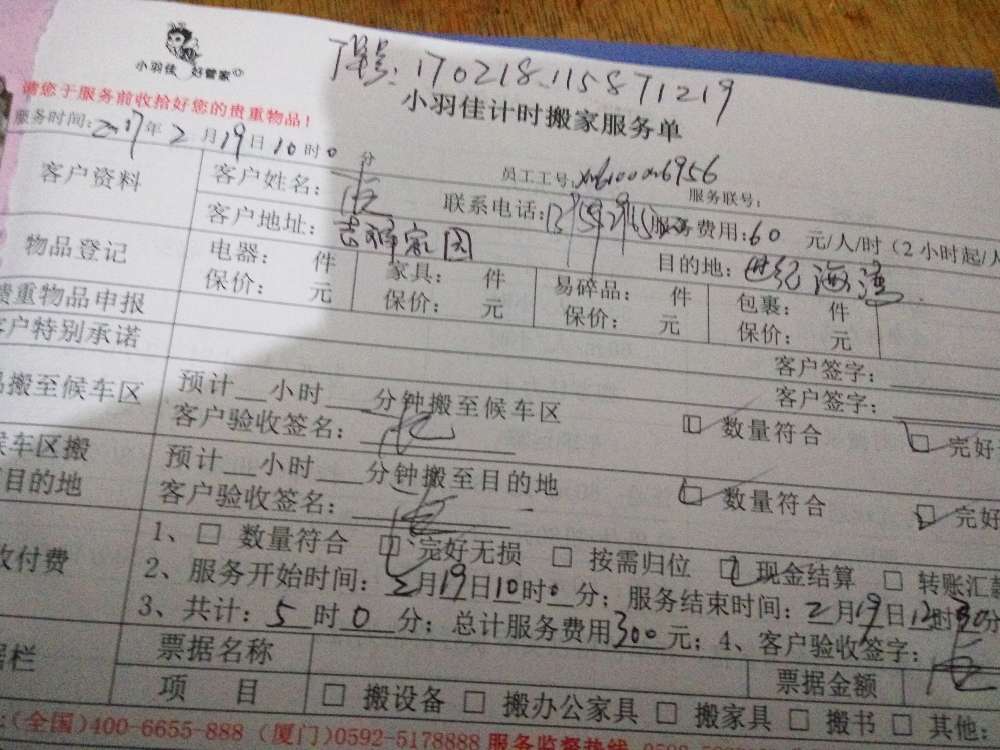 小羽佳 好管家
单号:170218.115871219
请您于服务前收拾好您的贵重物品!
小羽佳计时搬家服务单
服务时间:2017年2月19日10时0分
员工工号: 6956 服务联号:
客户资料 客户姓名: 联系电话: 服务费用:60 元/人/时(2小时起/人
客户地址:吉祥家园 目的地:世纪海湾
物品登记 电器: 件 家具: 件 易碎品: 件 包裹: 件
保价: 元 保价: 元 保价: 元 保价: 元
贵重物品申报 客户签字:
客户特别承诺 客户签字:
品搬至候车区 预计__小时___分钟搬至候车区
客户验收签名: □ 数量符合 □ 完好
候车区搬 预计__小时___分钟搬至目的地
目的地 客户验收签名: □ 数量符合 □ 完好
收付费 1、□ 数量符合 □ 完好无损 □ 按需归位 □ 现金结算 □ 转账汇款
2、服务开始时间:2月19日10时0分;服务结束时间:2月19日12时30分
3、共计:5时0分;总计服务费用300元;4、客户验收签字:
据栏 票据名称 票据金额
项 目 □ 搬设备 □ 搬办公家具 □ 搬家具 □ 搬书 □ 其他:
:(全国)400-6655-888 (厦门)0592-5178888 服务监督热线